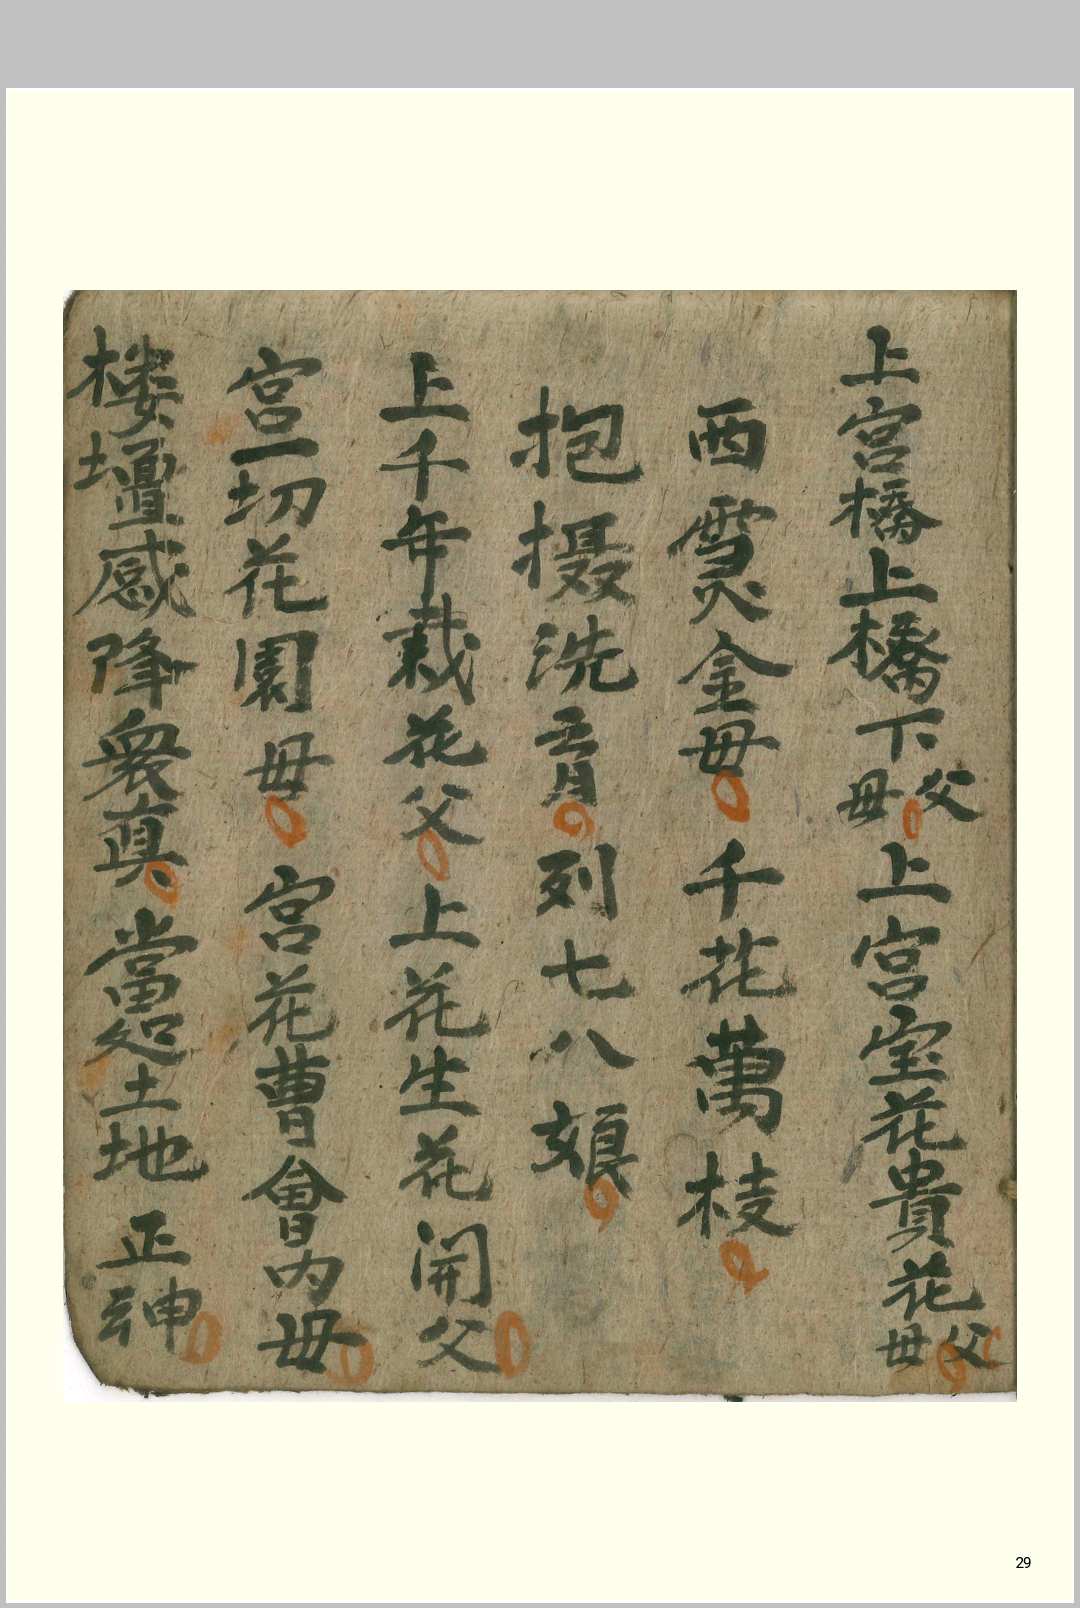 上宮橋上橋下父母上宮宝花貴花父母
西灵金母千花萬枝
抱摄洗育列七八娘
上千年栽花父上花生花開父
宮一切花園母宮花曹會内母
楼壇感降衆真當处土地正神
29